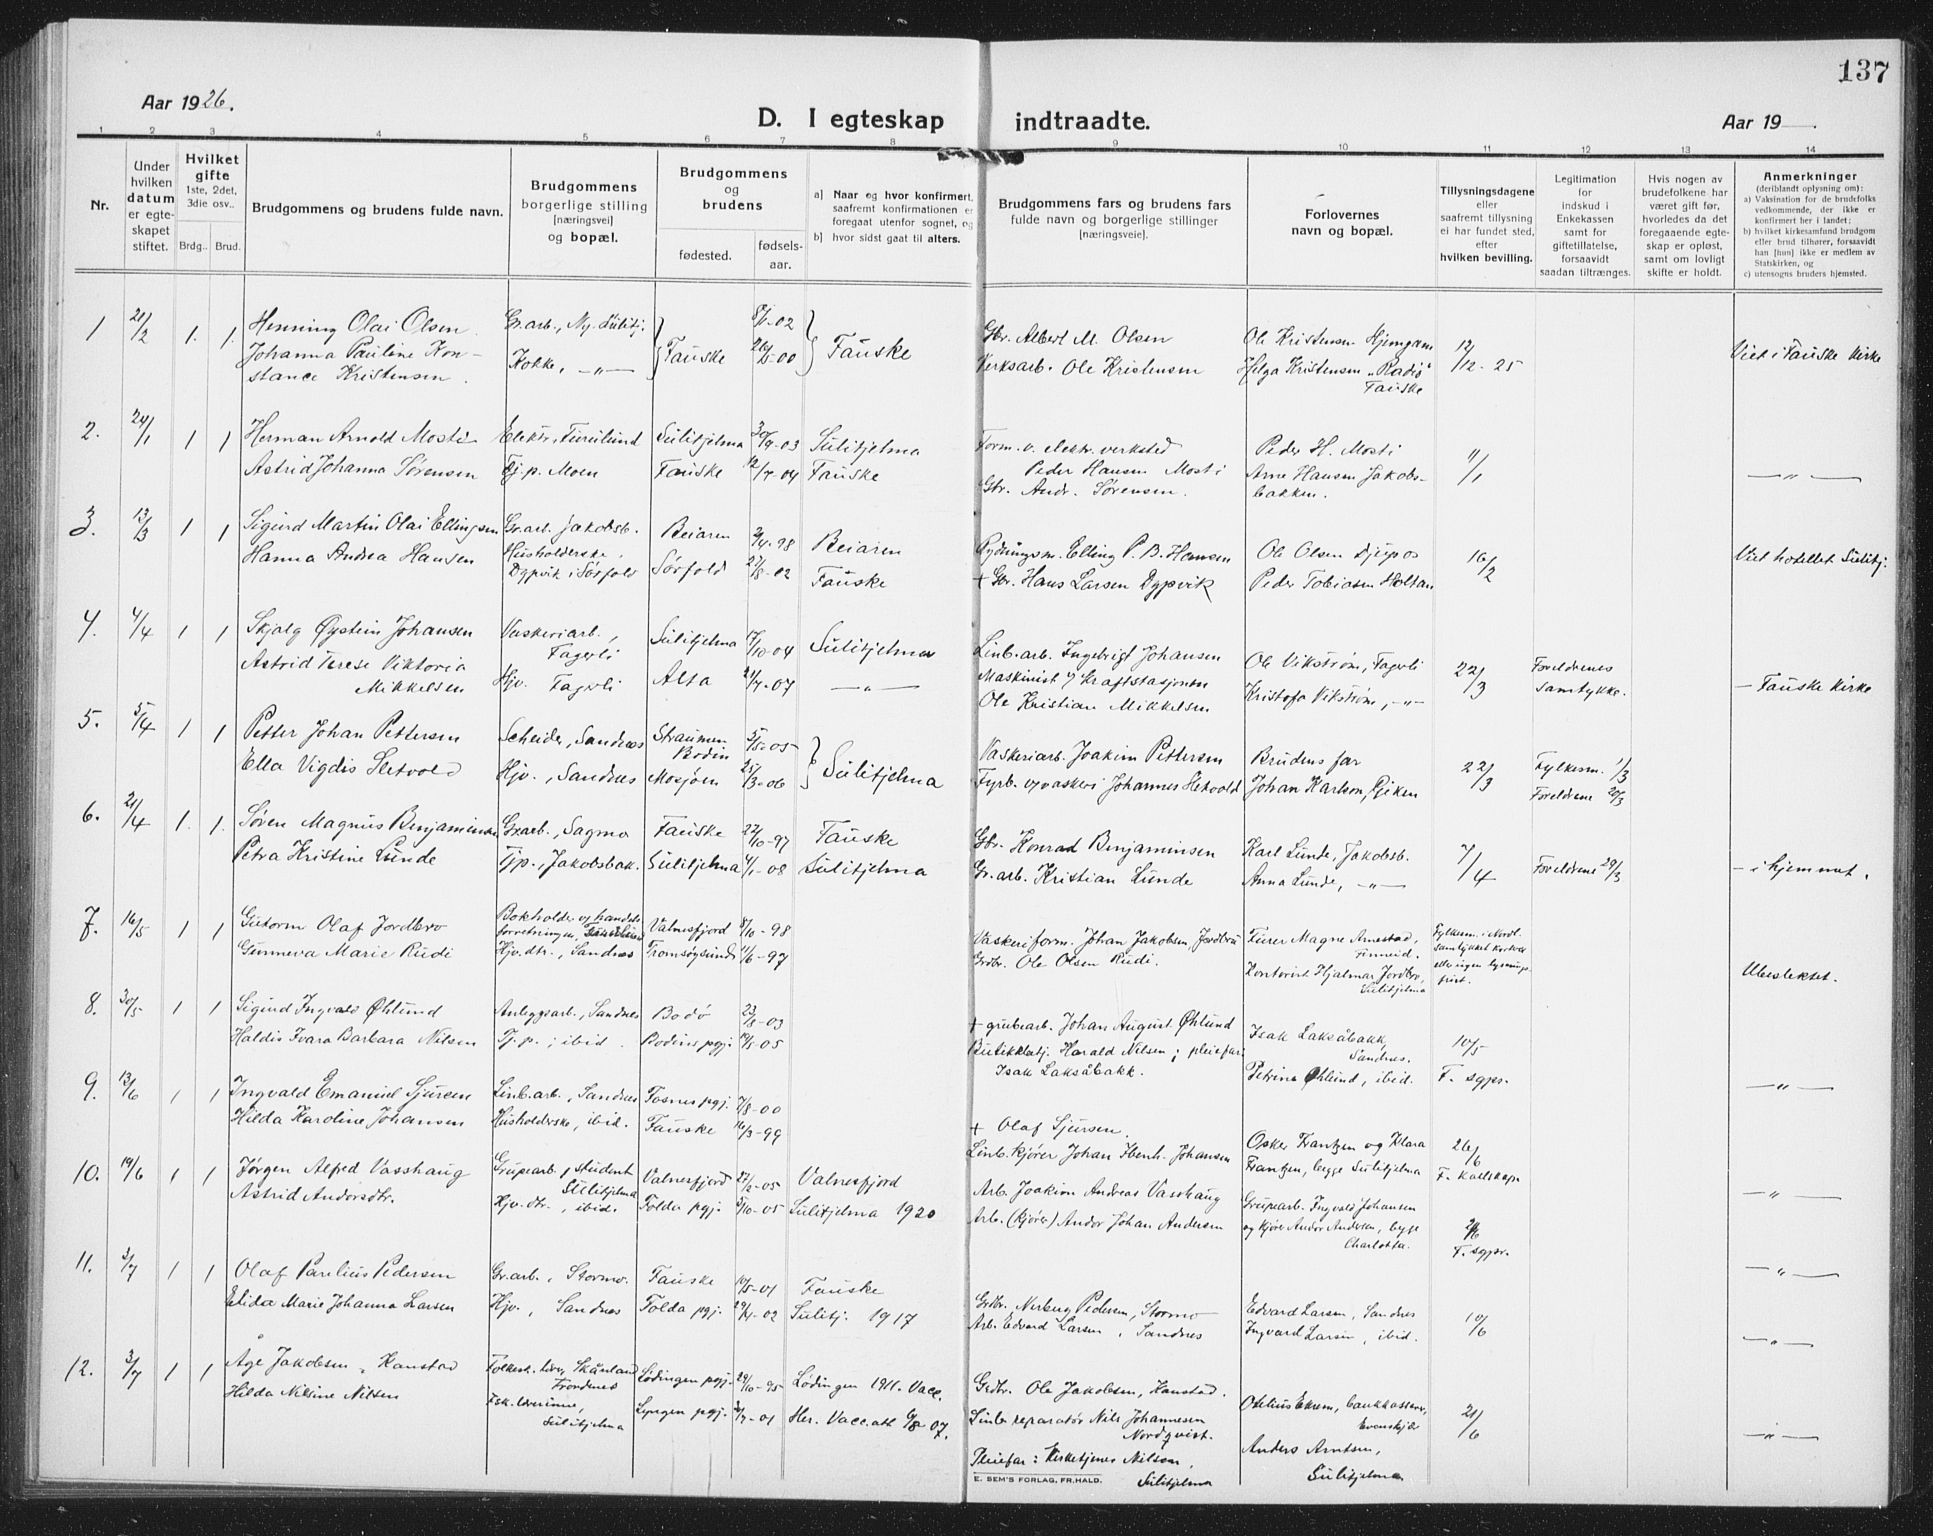 137
Aar 1926.
D. I egteskap indtraadte.
Aar 19
1 2 3 4 5 6 7 8 9 10 11 12 13 14
Nr.
Under hvilken datum er egteskapet stiftet.
Hvilket gifte 1ste, 2det, 3die osv..
Brdg.. Brud.
Brudgommens og brudens fulde navn.
Brudgommens borgerlige stilling [næringsvei] og bopæl.
Brudgommens og brudens
fødested. fødsels-aar.
a) Naar og hvor konfirmert, saafremt konfirmationen er foregaat utenfor sognet, og
b) hvor sidst gaat til alters.
Brudgommens fars og brudens fars fulde navn og borgerlige stillinger [næringsveie].
Forlovernes navn og bopæl.
Tillysningsdagene eller saafremt tillysning ei har fundet sted, efter hvilken bevilling.
Legitimation for indskud i Enkekassen samt for giftetillatelse, forsaavidt saadan tiltrænges.
Hvis nogen av brudefolkene har været gift før, hvorledes da det foregaaende egteskap er opløst, samt om lovligt skifte er holdt.
Anmerkninger (deriblandt oplysning om):
a) Vaksination for de brudefolks vedkommende, der ikke er konfirmert her i landet;
b) hvilket kirkesamfund brudgom eller brud tilhører, forsaavidt han [hun] ikke er medlem av Statskirken, og
c) utensogns bruders hjemsted.
1 21/2 1. 1. Henning Olai Olsen Gr.arb., Ny. Sulitj. Fauske 02 Fauske Gbr. Albert M. Olsen Ole Kristensen Hjemgam 12/12-25 Viet i Fauske Kirke
Johanna Pauline Konstance Kristensen. Kokke, —„— -00 Verksarb. Ole Kristensen Helga Kristensen "Radio" Fauske
2. 24/1 1 1 Herman Arnold Mosti Elektr., Furulund Sulitjelma 30/9-03 Sulitjelma Form. v. elektr. verksted Peder Hansen Mosti Peder H. Mosti 11/1 —„—
Astrid Johanna Sørensen Tj.p. Moen Fauske 12/7-04 Fauske Gbr. Andr. Sørensen. Arne Hansen Jakobsbakken.
3. 13/3 1 1 Sigurd Martin Olai Ellingsen Gr.arb. Jakobsb. Beiaren 2/4-98 Beiaren Rydningsm. Elling P. B. Hansen Ole Olsen Djupos 16/2 Viet hotellet Sulitj.
Hanna Andrea Hansen Husholderske, Dypvik i Sørfold Sørfold 27/8-02 Fauske + Gbr. Hans Larsen Dypvik Peder Tobiasen Holtan
4. 4/4 1 1 Skjalg Øystein Johansen Vaskeriarb., Fagerli Sulitjelma 17/10-04 Sulitjelma Linb.arb. Ingebrigt Johansen Ole Vikstrøm, Fagerli 22/3 Foreldrenes samtykke. — Fauske Kirke
Astrid Terese Viktoria Mikkelsen Hjv. Fagerli Alta 21/7-07 —„— Maskinist v/ kraftstasjonen Ole Kristian Mikkelsen Kristofa Vikstrøm, —„—
5. 5/4 1 1 Petter Johan Pettersen Scheider, Sandnes Straumen Bodin 5/5-05 Sulitjelma Vaskeriarb. Joakim Pettersen Brudens far 22/3 Fylkesm. 1/3
Ella Vigdis Hetvold Hjv., Sandnes Mosjøen 25/3-06 Fyrb. v/vaskeri Johannes Hetvold Johan Karlson, Giken Foreldrene 20/3
6. 21/4 1. 1. Søren Magnus Benjaminsen Gr.arb., Sagmo Fauske 22/10-97 Fauske Gbr. Konrad Benjaminsen Karl Lunde, Jakobsb. 7/4 Foreldrene 29/3 — i hjemmet.
Petra Kristine Lunde Tjp., Jakobsbak. Sulitjelma 4/1-08 Sulitjelma Gr.arb. Kristian Lunde Anna Lunde, —„—
7. 16/5 1 1 Gutorm Olaf Jordbro Bokholder og handelsforretninger, Valnesfjord 8/10-98 Vaskeriform. Johan Jakobsen, Jordbru Furer Magne Arnestad, Finneid. Fylkesm. i Nordl. samtykket kortere eller ingen lysningsfrist. Ubeslektet.
Gunneva Marie Rudi Hjv.dtr., Sandnes Tromsøysund 11/6-97 Grdbr. Ole Olsen Rudi. Kontorist Hjalmar Jordbro, Sulitjelma
8. 30/5 1 1 Sigurd Ingvald Øhlund Anleggsarb., Sandnes Bodø 23/8-03 + grubearb. Johan August Øhlund Isak Laksåbakk, Sandnes. 10/5 —„—
Haldis Ivara Barbara Nilsen Tj.p., ibid. Bodins pgj. 19/5-05 Butikkbetj. Harald Nilsen; pleiefar Isak Laksåbakk. Petrina Øhlund, ibid. F. sgpr.
9. 13/6 1 1 Ingvald Emanuel Sjursen Linb.arb., Sandnes Fosnes pgj. 7/8-00 + Olaf Sjursen. Oskar Frantzen og Klara Frantzen, begge Sulitjelma 26/6 F. kallskap.
Hilda Karoline Johansen Husholderske, ibid. Fauske 16/3-99 Linb. kjører Johan Ibenh. Johansen
10. 19/6 1 1 Jørgen Alfred Vasshaug Grupearb., student Sulitjelma Valnesfjord 27/2-05 Valnesfjord Arb. Joakim Andreas Vasshaug Grupearb. Ingvald Johansen —„—
Astrid Andorsdtr. Hjv.dtr., ibid. Folda pgj. 5/10-05 Sulitjelma 1920 Arb. (kjører) Andor Johan Andersen og kjører Andor Andersen, begge Charlotta. F. sgpr.
11. 3/7 1 1 Olaf Parelius Pedersen Gr.arb., Stormo. Fauske 10/5-01 Fauske Grdbr. Nerberg Pedersen, Stormo Edvard Larsen, Sandnes 10/6 —„—
Elida Marie Johanna Larsen Hjv., Sandnes Folda pgj. 29/4-02 Sulitj. 1917 Arb. Edvard Larsen, Sandnes Ingvard Larsen, ibid.
12. 3/7 1 1 Åge Jakobsen Kanstad Folkesk. lærer, Skånland Trondnes Lødingen pgj. 29/10-95 Lødingen 1911. Vacc. Grdbr. Ole Jakobsen, Kanstad. Otelius Ekrem, bankkasserer, Evenskjær 21/6 —„—
Hilda Nilsine Nilsen Fsk. lærerinne, Sulitjelma Lyngen pgj. 7-01 Her. Vacc.att. 6/8 07. Linb. reparatør Nils Johannesen Nordqvist. Anders Arntsen, Sulitjelma
Pleiefar: Kirketjener Nilsen, Sulitjelma
E. SEM'S FORLAG, FR.HALD.